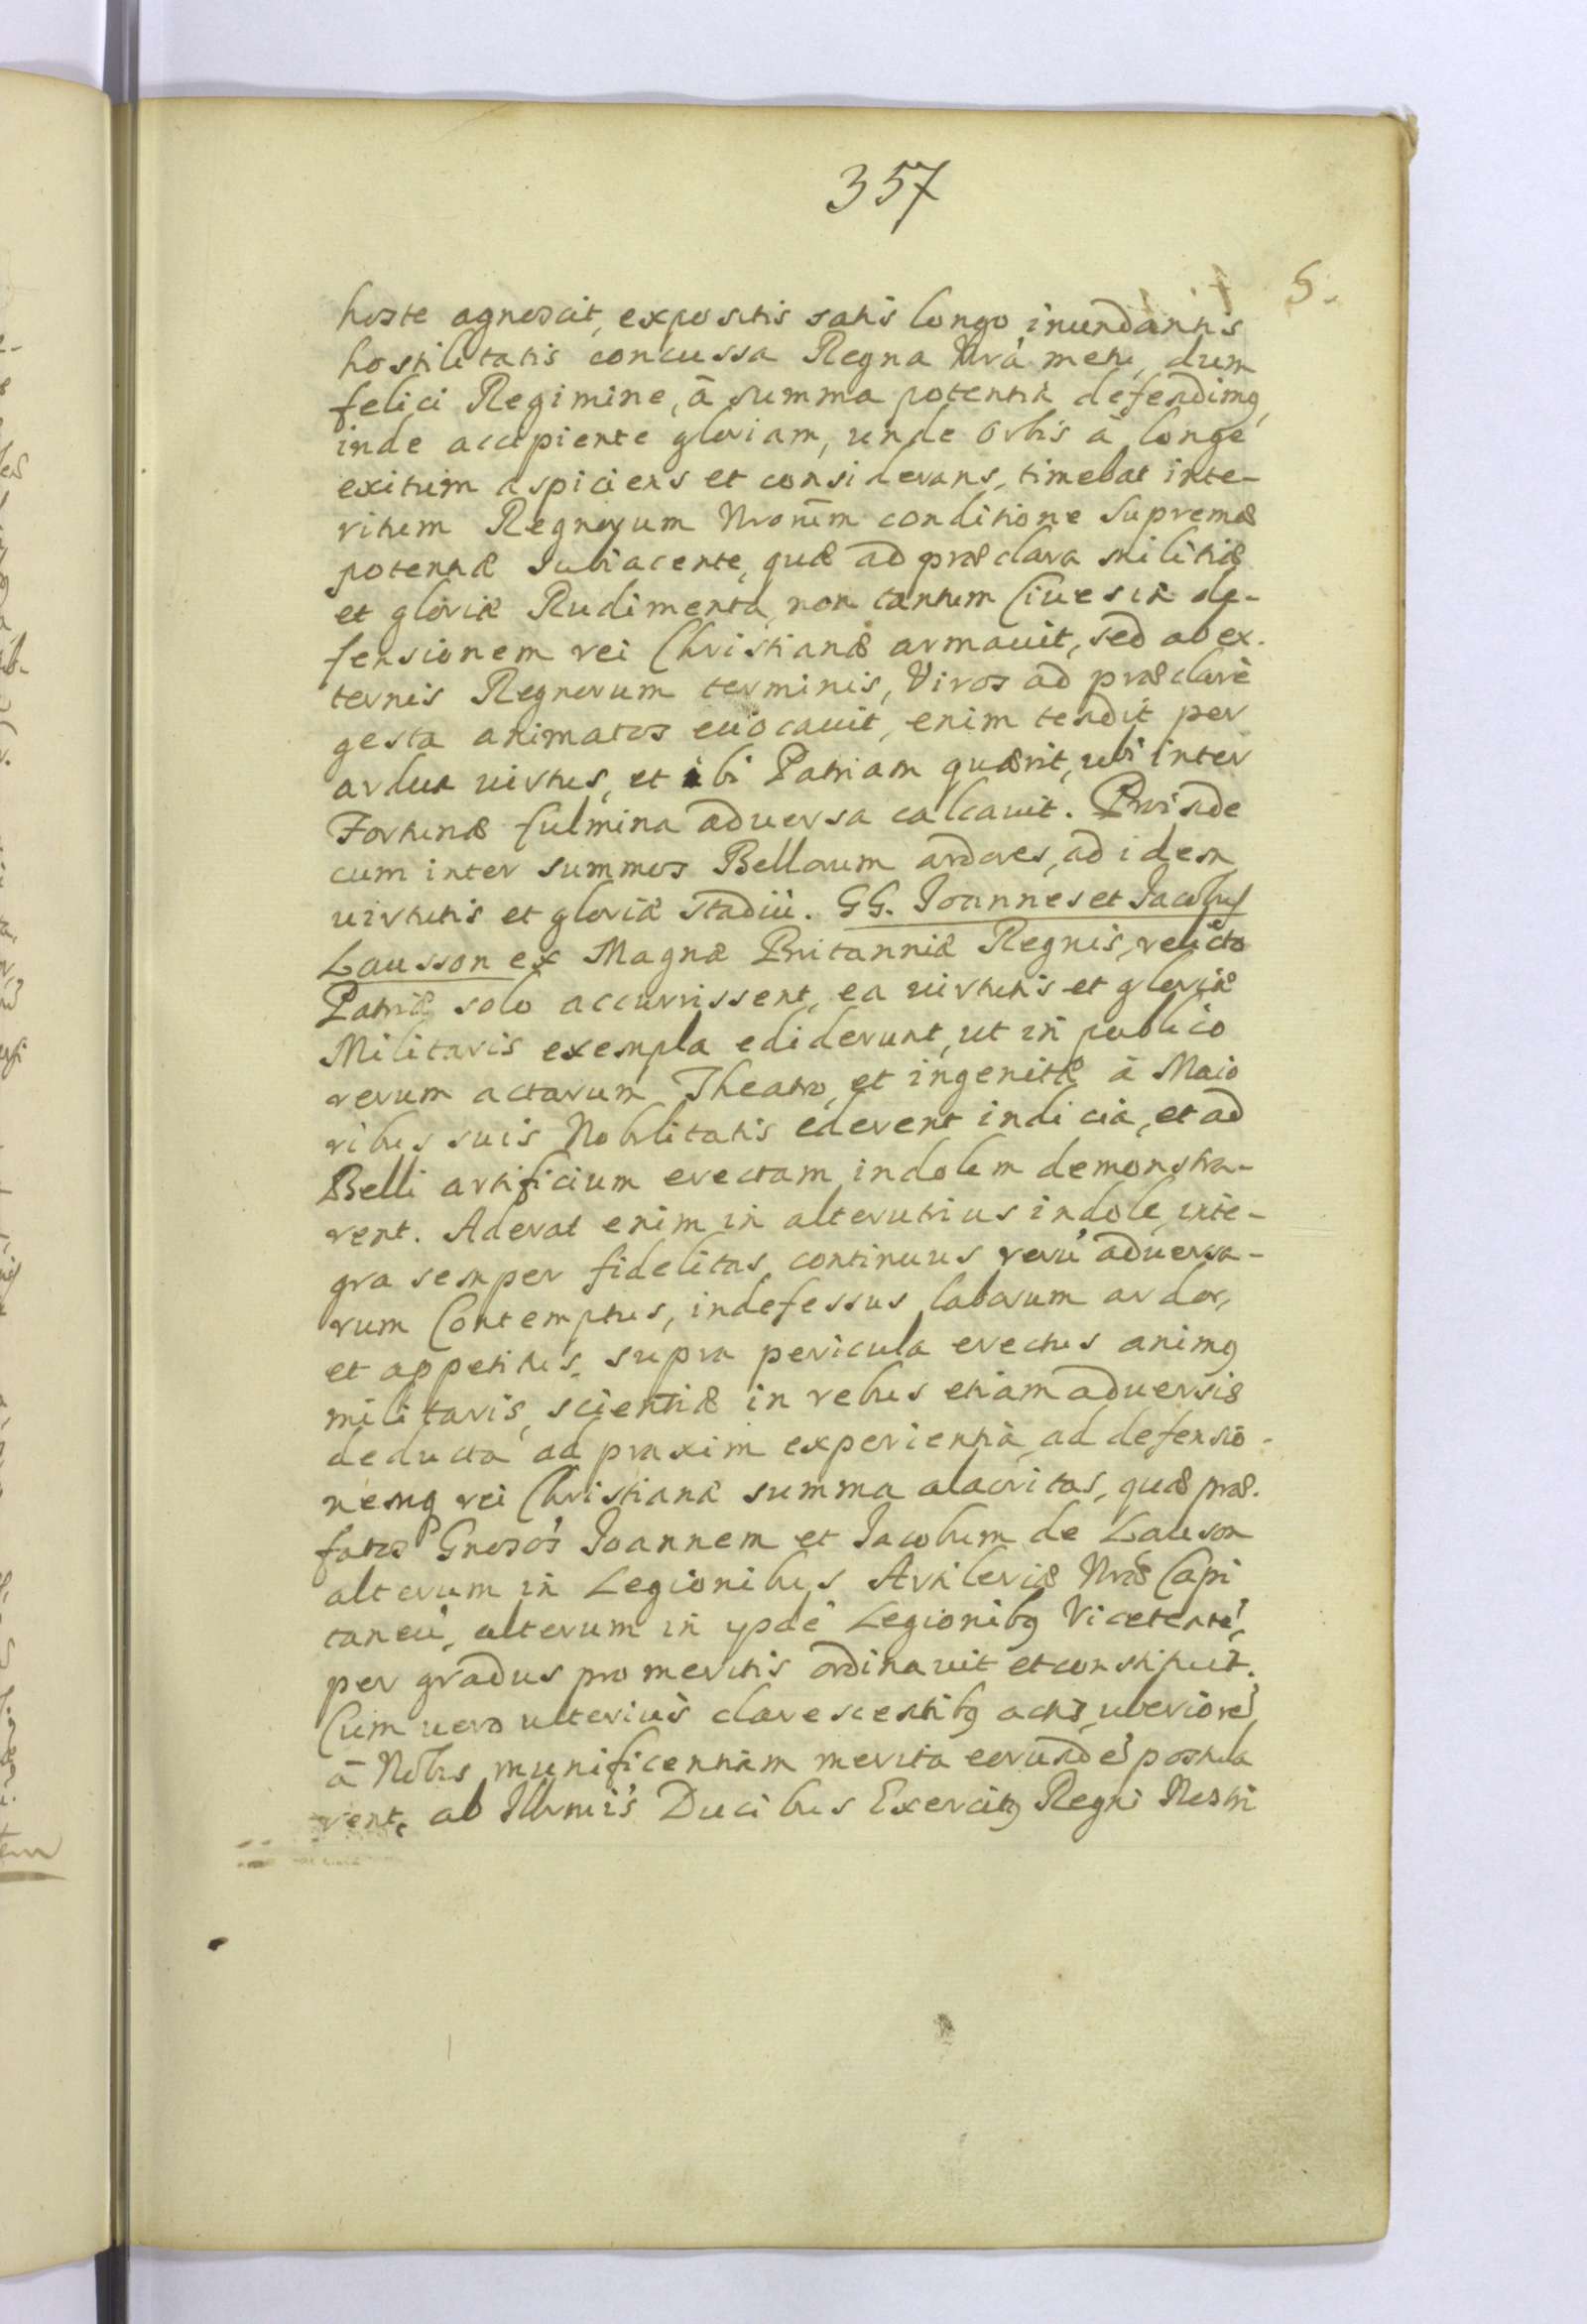 357
5.
hoste agnoscit, expositis satis longo inundantis
hostilitatis concussa Regna Nrâ metu, dum
felici Regimine, â summa potentia defendimq,
inde accipiente gloriam, unde Orbis à longè
exitium aspiciens et considerans, timebat inte-
ritum Regnorum Nrorum conditione Supremæ
potentiæ Subiacente, quæ ad præclara militiæ
et gloriæ Rudimenta, non tantum Ciues in de-
fensionem rei Christianæ armauit, sed ab ex-
ternis Regnorum terminis, Viros ad præclarè
gesta animatos euocauit, enim tendit per
ardua uirtus, et ibi Patriam quærit, ubi inter
Fortunæ fulmina aduersa calcauit. Proinde
cum inter summos Bellorum ardores, ad idem
uirtutis et gloriæ stadiũ. GG. Joannes et Jacobus
Lausson ex Magnæ Britanniæ Regnis, relicto
Patriæ solo accurrissent, ea uirtutis et gloriæ
Militaris exempla ediderunt, ut in publico
rerum actarum Theatro, et ingenitæ à Maio
ribus suis Nobilitatis ederent indicia, et ad
Belli artificium erectam indolem demonstra-
rent. Aderat enim in alterutrius indole inte-
gra semper fidelitas, continuus rerũ aduersa-
rum Contemptus, indefessus laborum ardor,
et appetitus, supra pericula erectus animq
militaris, scientiæ in rebus etiam aduersis
deducta ad praxim experientia, ad defensio-
nemq rei Christianæ summa alacritas, quæ præ-
fatos Gnosos Joannem et Jacobum de Lauson
alterum in Legionibus Artileriæ Nræ Capi
taneũ, alterum in ypdẽ Legionibq Vicetentẽ,
per gradus pro meritis ordinauit et constituit.
Cum uero ulterius clarescentibq actis, uberiorẽ
â Nobis munificentiam merita eorundẽ postula
rent, ab Illrmis Ducibus Exercitq Regni Nostri